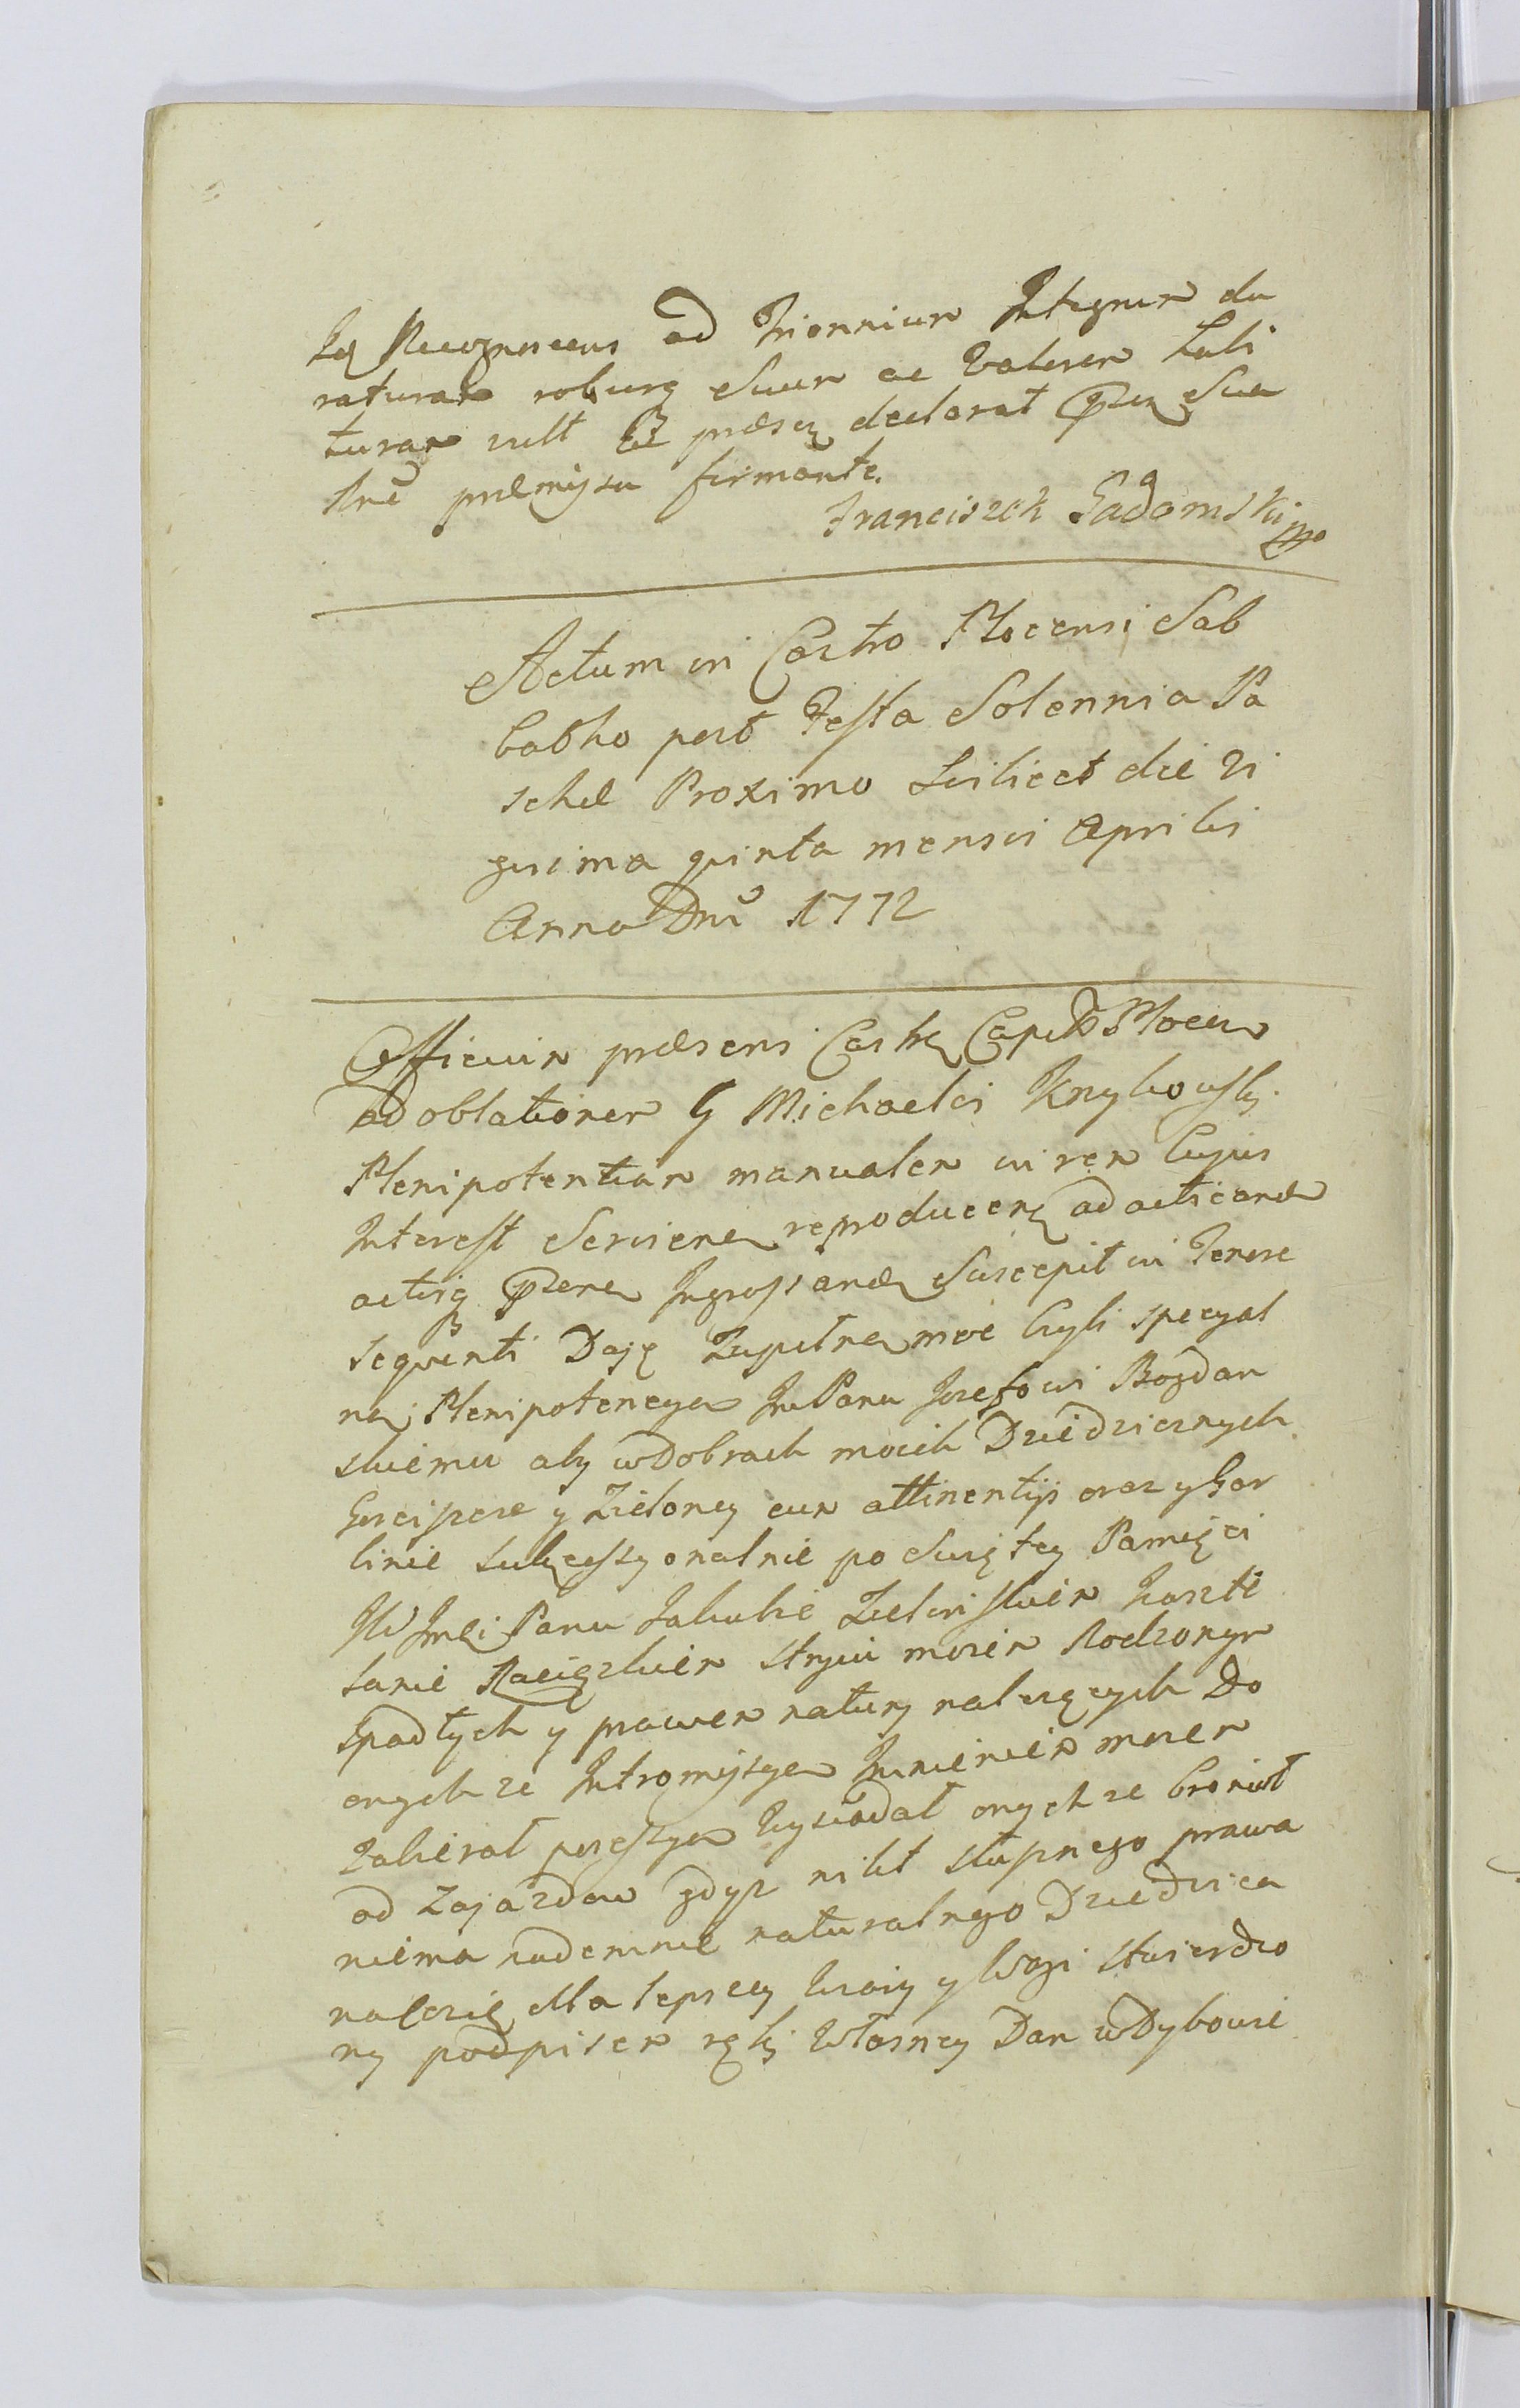 Recognoscens ad Triennium Integrum du
raturam roburq suum ac Valorem habi
turam vult et præsen declarat sua
præmissa firmante.
Franciszek Gadomski mp
Actum in Castro Plocensi Sab
batho post Festa Solennia Pa
schæ Proximo Scilicet die Vi
gesima quinta mensis Aprilis
Anno Dni 1772
Officium præsens Castr Capit Plocen
ad oblationem G Michaelis Knybowsk
Plenipotentiam manualem in rem Cujus
Interest Servien reproducen ad acticand
actisq Ingrossand Suscepit in Tenore
sequenti Daję Zupełną moc Czyli specyal
ną Plenipotencyą Jm Panu Jozefowi Bogdan
skiemu aby w Dobrach moich Dziedzicznych
y Zieloney cum attinentijs oraz y Kar
linie sukcessyonalnie po Swiętey Pamięci
JW Jmci Panu Jakubie Zielinskim Kaszte
lanie Raciązkim stryiu moim Rodzonym
Spadłych y prawem natury należących Do
onych ze Intromissyą Imieniem moiem
Zabierał possessyą onych ze bronił
od Zajazdow gdyz nikt słusznego prawa
niema nademnie naturalnego Dziedzica
należie dla lepszey Wiary y Wagi stwierdzo
ny podpisem ręki Własney Dan w Dybowie